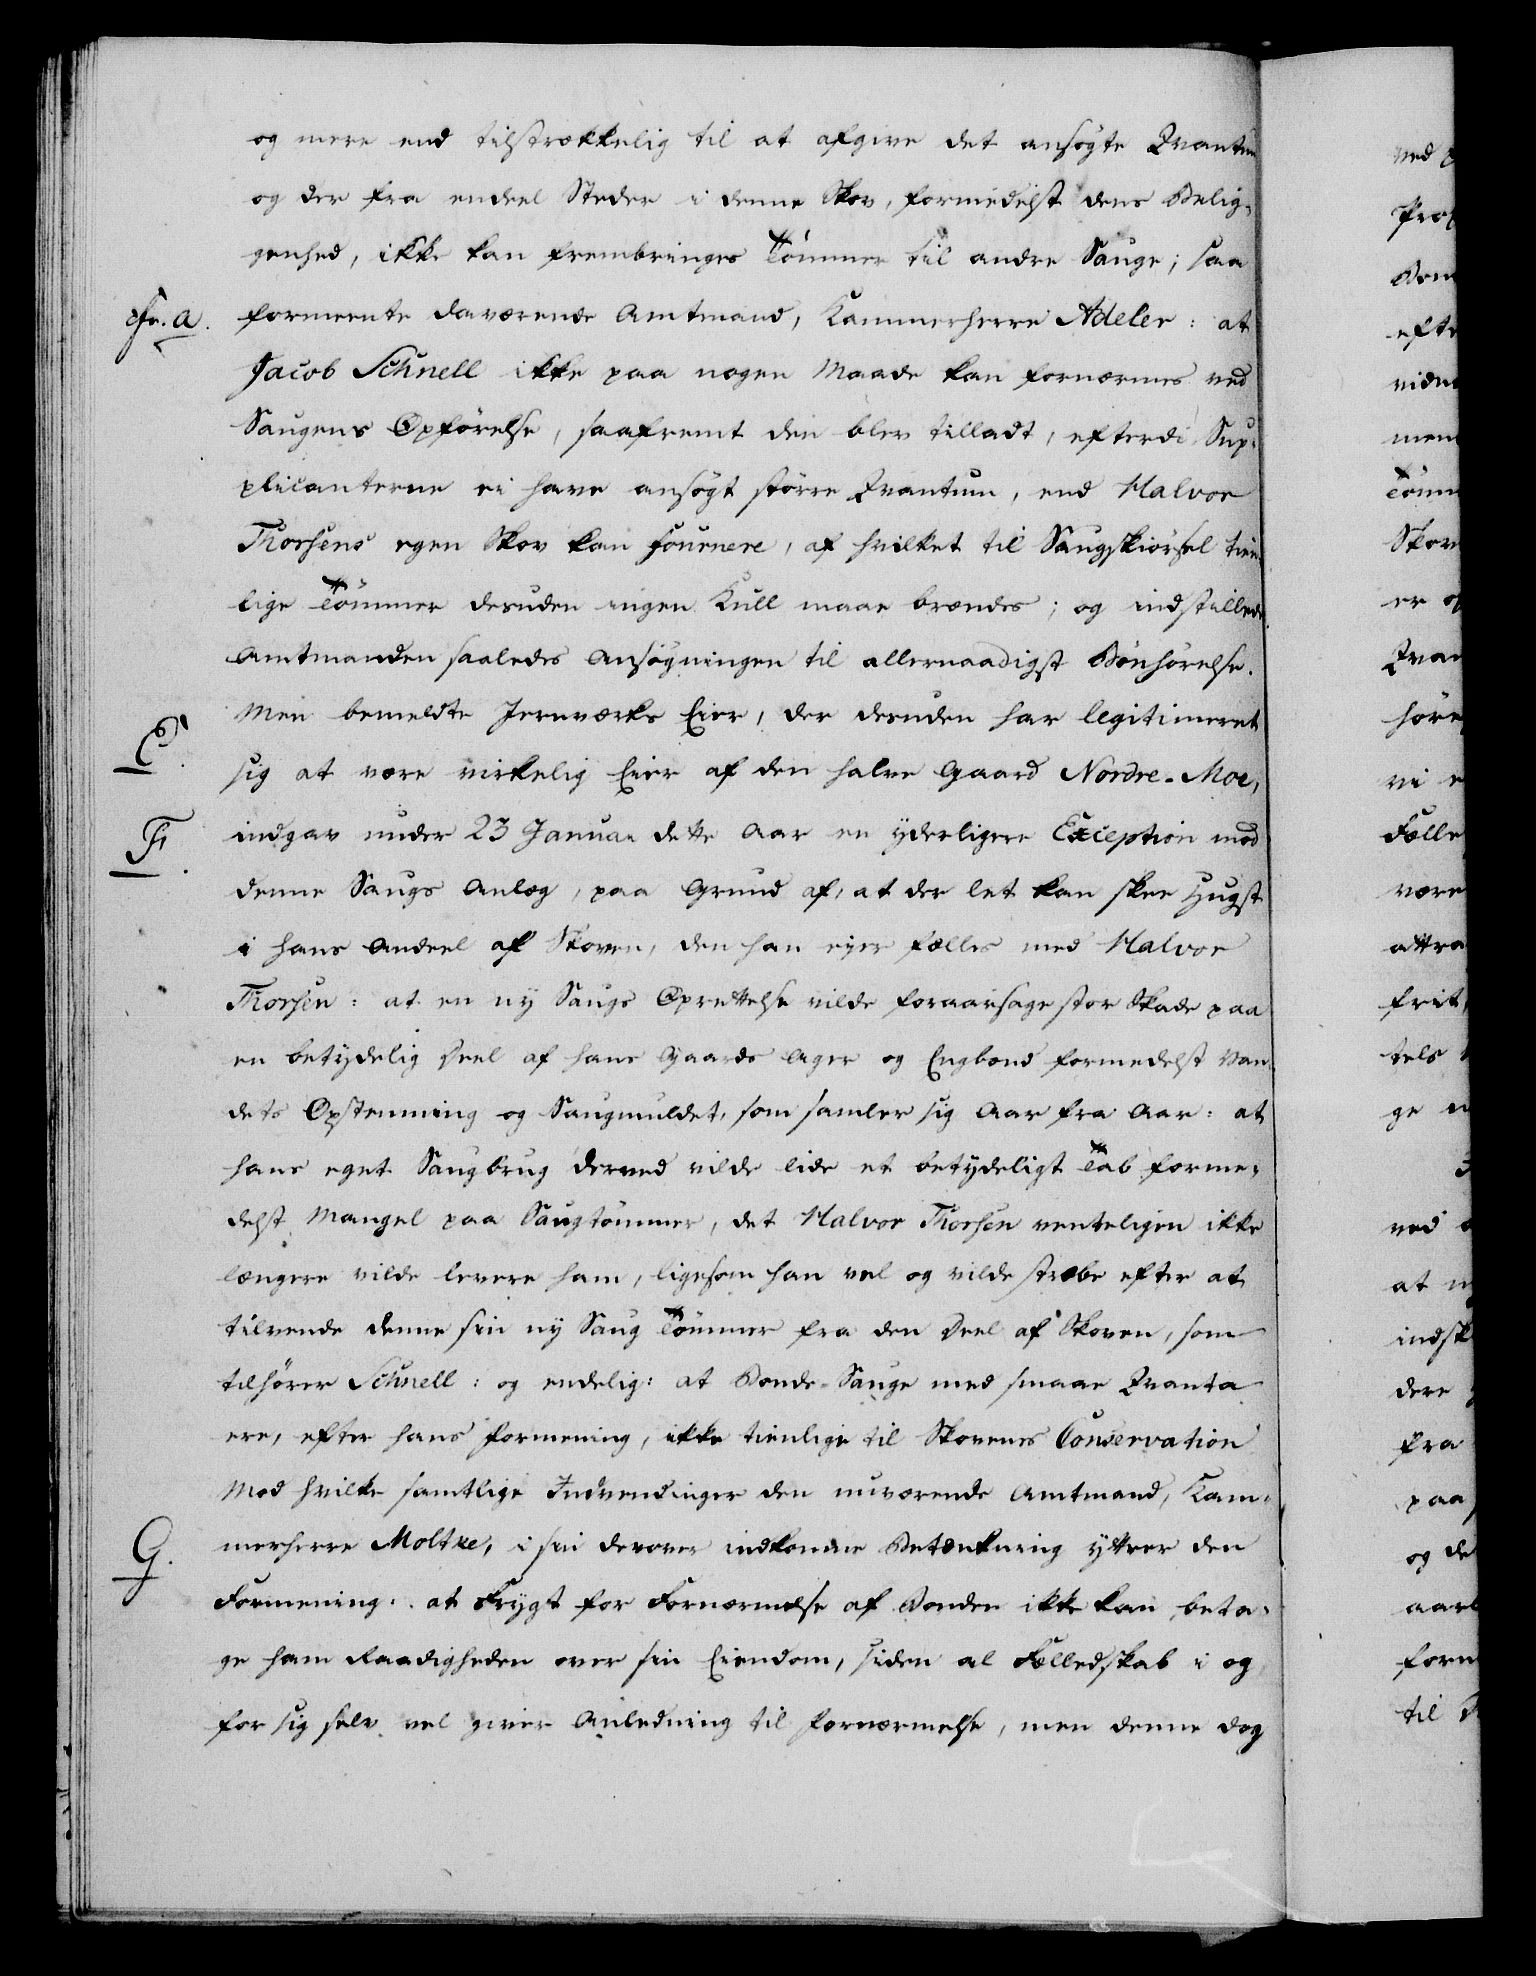 og mere end tilstrækkelig til at afgive det ansøgte Qvantum
og der fra endeel Steder i denne Skov, formedelst dens Belig-
genhed, ikke kan frembringes Tömmer til andre Sauge; saa
cfr. a.
formeente daværende Amtmand, Kammerherre Adeler: at
Jacob Schnell ikke paa nogen Maade kan fornærmes ved
Saugens Opførelse, saafremt den blev tilladt, efterdi Sup-
plicanterne ei have ansøgt større Qvantum, end Halvor
Thorsens egen Skov kan fournere, af hvilket til Saugskiørsel tien-
lige Tömmer desuden ingen Kull maae brændes; og indstillede
Amtmanden saaledes Ansøgningen til allernaadigst Bönhörelse.
Men bemeldte Jernværks Eier, der desuden har legitimeret
E.
sig at være virkelig Eier af den halve Gaard Nordre-Moe,
F.
indgav under 23 Januar dette Aar en yderligere Exception mod
denne Saugs Anlæg, paa Grund af, at der let kan skee Hugst
i hans Andeel af Skoven, den han eier fælles med Halvor
Thorsen: at en ny Saugs Oprettelse vilde foraarsage stor Skade paa
en betydelig Deel af hans Gaards Ager og Engbond formedelst Van-
dets Opstemning og Saugmuldet, som samler sig Aar fra Aar: at
hans eget Saugbrug derved vilde lide et betydeligt Tab forme-
delst Mangel paa Saugtömmer, det Halvor Thorsen venteligen ikke
længere vilde levere ham, ligesom han vel og vilde stræbe efter at
tilvende denne sin ny Saug Tömmer fra den Deel af Skoven, som
tilhörer Schnell: og endelig: at Bonde-Sauge med smaae Qvanta
ere, efter hans Formening, ikke tienlige til Skovens Conservation
Mod hvilke samtlige Indvendinger den nuværende Amtmand, Kam-
G.
merherre Moltke, i sin derover indkomne Betænkning yttrer den
Formening: at Frygt for Fornærmelse af Bonden ikke kan beta-
ge ham Raadigheden over sin Eiendom, siden al Fælledskab i og
for sig selv vel giver Anledning til Fornærmelse, men denne dog